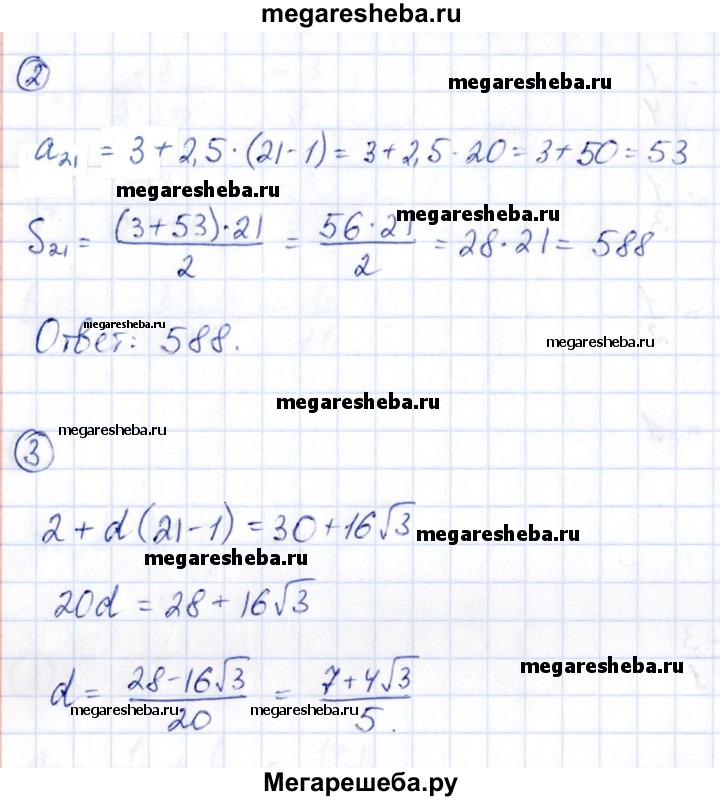 megaresheba.ru
②
megaresheba.ru
a₂₁ = 3 + 2,5 · (21 - 1) = 3 + 2,5 · 20 = 3 + 50 = 53
megaresheba.ru
megaresheba.ru
S₂₁ = (3 + 53) · 21 / 2 = 56 · 21 / 2 = 28 · 21 = 588
megaresheba.ru
Ответ: 588.
megaresheba.ru
megaresheba.ru
megaresheba.ru
③
2 + d (21 - 1) = 30 + 16√3
megaresheba.ru
megaresheba.ru
20d = 28 + 16√3
megaresheba.ru
d = 28 - 16√3 / 20 = 7 + 4√3 / 5.
megaresheba.ru
megaresheba.ru
Мегарешеба.ру